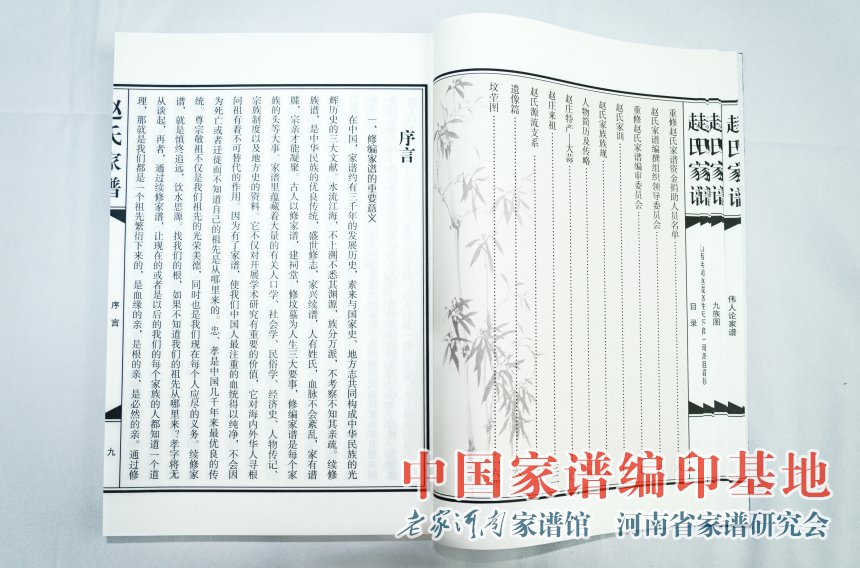 赵氏家谱
伟人论家谱
赵氏家谱
九族图
赵氏家谱
赵氏家谱
目录
重修赵氏家谱资金捐助人员名单
赵氏家谱编撰组织领导委员会
重修赵氏家谱编审委员会
赵氏家训
赵氏家族族规
人物简历及传略
赵庄特产—大蒜
赵庄来祖
赵氏源流支系
遗像篇
坟茔图
序言
一、修编家谱的重要意义
在中国，家谱约有三千年的发展历史，素来与国家史、地方志共同构成中华民族的光
辉历史的三大文献。水流江海，不上溯不悉其渊源，族分万派，不考察不知其亲疏。续修
族谱，是中华民族的优良传统，盛世修志，家兴续谱，人有姓氏，血脉不会紊乱，家有谱
牒，宗亲才能凝聚。古人以修家谱，建祠堂，修坟墓为人生三大要事，修编家谱是每个家
族的头等大事。家谱里蕴藏着大量的有关人口学、社会学、民俗学、经济史、人物传记、
宗族制度以及地方史的资料。它不仅对开展学术研究有重要的价值，它对海内外华人寻根
问祖有着不可替代的作用。因为有了家谱，使我们中国人最注重的血统得以纯净，不会因
为死亡或者迁徙而不知道自己的祖先是从哪里来的。忠、孝是中国几千年来最优良的传
统。尊宗敬祖不仅是我们祖先的光荣美德，同时也是我们现在每个人应尽的义务。续修家
谱，就是慎终追远，饮水思源，找我们的根，如果不知道我们的祖先从哪里来？孝字将无
从谈起，再者，通过续修家谱，让现在的或者是以后的我们的每个家族的人都知道一个道
理，那就是我们都是一个祖先繁衍下来的，是血缘的亲，是根的亲，是必然的亲。通过修
赵氏家谱
序言
九
中国家谱编印基地
老家河南家谱馆 河南省家谱研究会